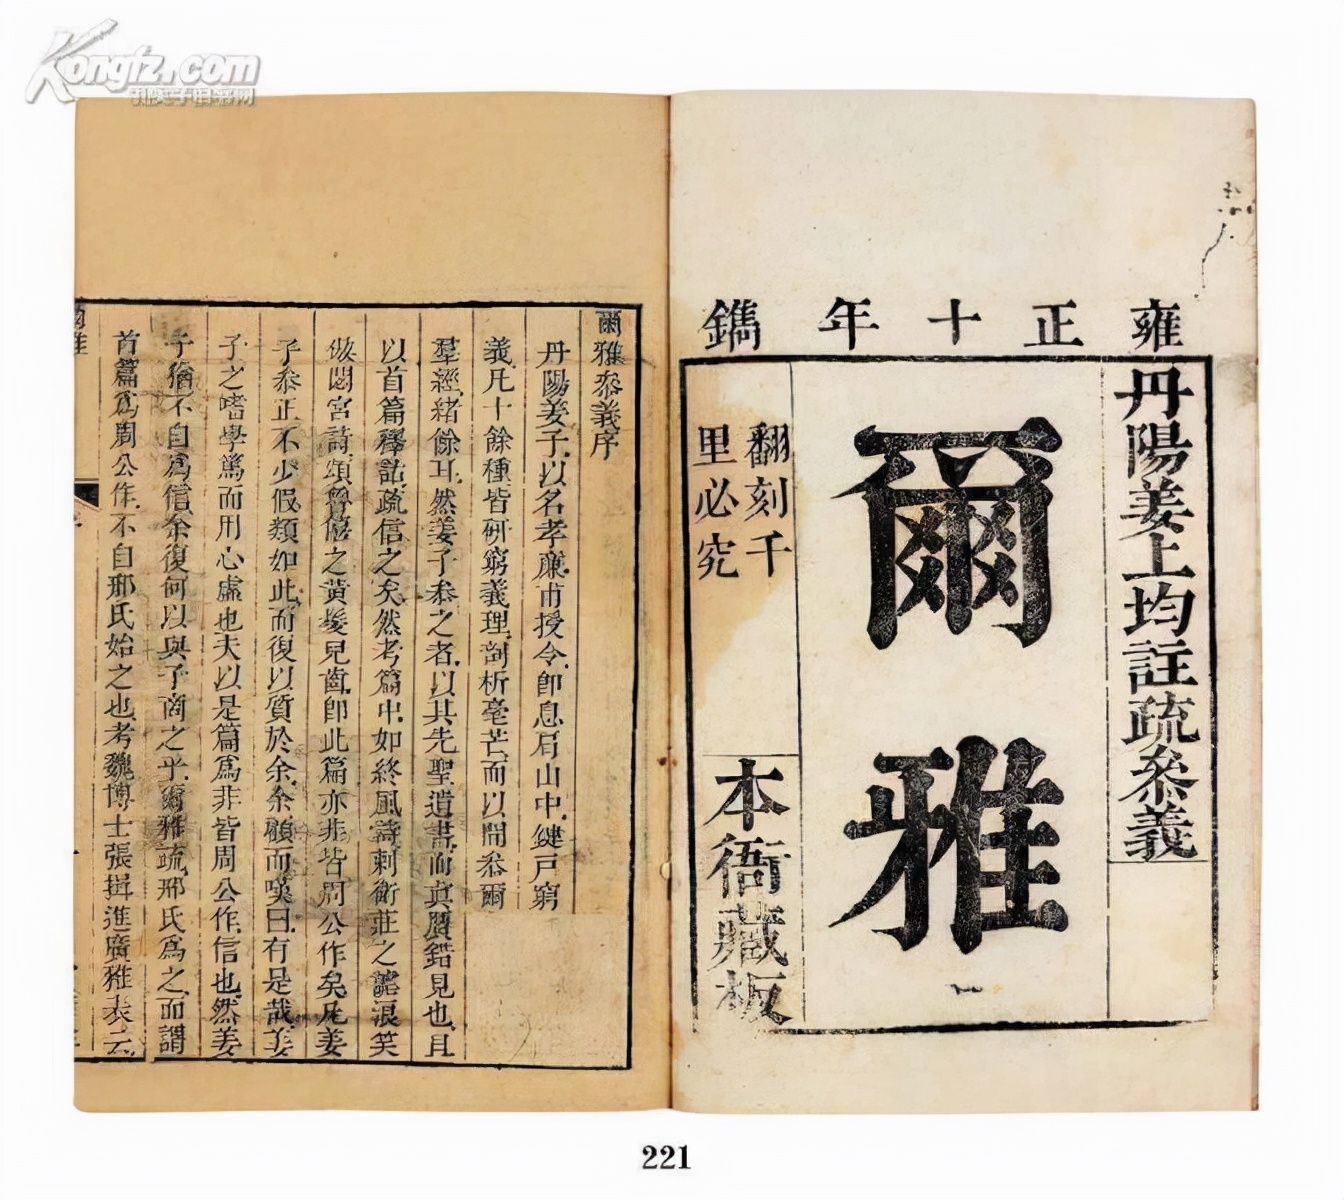 Kongfz.com
孔夫子旧书网
雍正十年鐫
丹陽姜上均註疏叅義
爾雅
翻刻千
里必究
本衙藏板
爾雅叅義序
丹陽姜子以名孝廉甫授令卽息肩山中鍵戸窮
義凡十餘種皆研窮義理剖析毫芒而以閒叅爾
羣經緒餘耳然姜子叅之者以其先聖遺書而真贋錯見也且
以首篇釋詁疏信之矣然考篇中如終風詩刺衛莊之謔浪笑
傲閟宮詩頌魯僖之黃髮兒齒卽此篇亦非皆周公作矣凡姜
子叅正不少假類如此而復以質於余余顧而嘆曰有是哉姜
子之嗜學篤而用心虛也夫以是篇爲非皆周公作信也然姜
子猶不自爲信余復何以與子商之乎爾雅疏邢氏爲之而謂
首篇爲周公作不自邢氏始之也考魏博士張揖進廣雅表云
爾雅
221